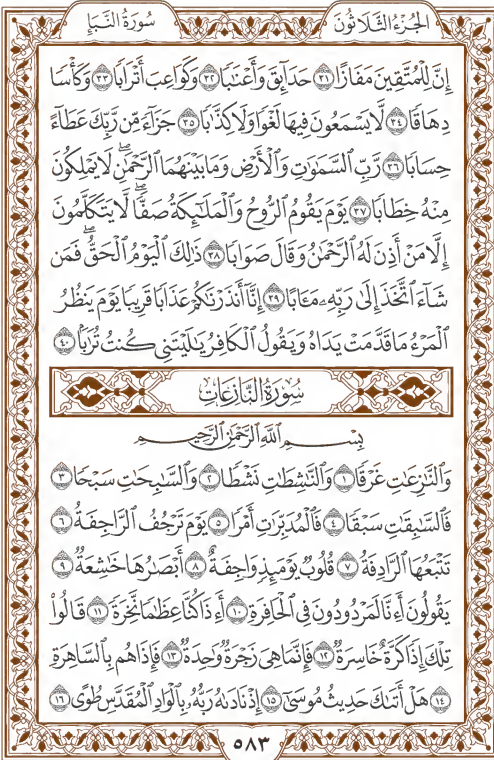 الجُزْءُ الثَّلَاثُونَ
سُورَةُ النَّبَإِ
إِنَّ لِلْمُتَّقِينَ مَفَازًا ٣١ حَدَآئِقَ وَأَعْنَٰبًا ٣٢ وَكَوَاعِبَ أَتْرَابًا ٣٣ وَكَأْسًا
دِهَاقًا ٣٤ لَّا يَسْمَعُونَ فِيهَا لَغْوًا وَلَا كِذَّٰبًا ٣٥ جَزَآءً مِّن رَّبِّكَ عَطَآءً
حِسَابًا ٣٦ رَّبِّ ٱلسَّمَٰوَٰتِ وَٱلْأَرْضِ وَمَا بَيْنَهُمَا ٱلرَّحْمَٰنِۖ لَا يَمْلِكُونَ
مِنْهُ خِطَابًا ٣٧ يَوْمَ يَقُومُ ٱلرُّوحُ وَٱلْمَلَٰٓئِكَةُ صَفًّاۖ لَّا يَتَكَلَّمُونَ
إِلَّا مَنْ أَذِنَ لَهُ ٱلرَّحْمَٰنُ وَقَالَ صَوَابًا ٣٨ ذَٰلِكَ ٱلْيَوْمُ ٱلْحَقُّۖ فَمَن
شَآءَ ٱتَّخَذَ إِلَىٰ رَبِّهِۦ مَـَٔابًا ٣٩ إِنَّآ أَنذَرْنَٰكُمْ عَذَابًا قَرِيبًا يَوْمَ يَنظُرُ
ٱلْمَرْءُ مَا قَدَّمَتْ يَدَاهُ وَيَقُولُ ٱلْكَافِرُ يَٰلَيْتَنِي كُنتُ تُرَٰبًۢا ٤٠
سُورَةُ النَّازِعَاتِ
بِسْمِ ٱللَّهِ ٱلرَّحْمَٰنِ ٱلرَّحِيمِ
وَٱلنَّٰزِعَٰتِ غَرْقًا ١ وَٱلنَّٰشِطَٰتِ نَشْطًا ٢ وَٱلسَّٰبِحَٰتِ سَبْحًا ٣
فَٱلسَّٰبِقَٰتِ سَبْقًا ٤ فَٱلْمُدَبِّرَٰتِ أَمْرًا ٥ يَوْمَ تَرْجُفُ ٱلرَّاجِفَةُ ٦
تَتْبَعُهَا ٱلرَّادِفَةُ ٧ قُلُوبٌ يَوْمَئِذٍ وَاجِفَةٌ ٨ أَبْصَٰرُهَا خَٰشِعَةٌ ٩
يَقُولُونَ أَءِنَّا لَمَرْدُودُونَ فِي ٱلْحَافِرَةِ ١٠ أَءِذَا كُنَّا عِظَٰمًا نَّخِرَةً ١١ قَالُوا۟
تِلْكَ إِذًا كَرَّةٌ خَاسِرَةٌ ١٢ فَإِنَّمَا هِيَ زَجْرَةٌ وَٰحِدَةٌ ١٣ فَإِذَا هُم بِٱلسَّاهِرَةِ
١٤ هَلْ أَتَىٰكَ حَدِيثُ مُوسَىٰٓ ١٥ إِذْ نَادَىٰهُ رَبُّهُۥ بِٱلْوَادِ ٱلْمُقَدَّسِ طُوًى ١٦
٥٨٣